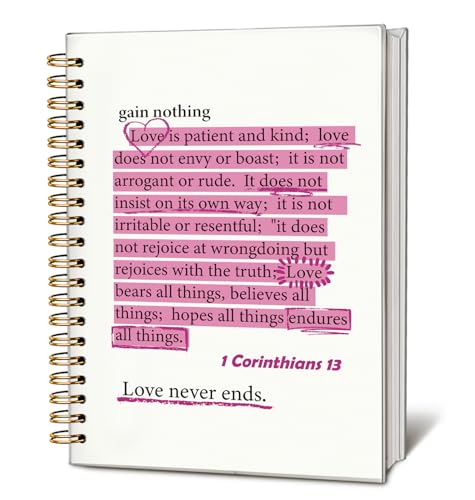 gain nothing
Love is patient and kind; love
does not envy or boast; it is not
arrogant or rude. It does not
insist on its own way; it is not
irritable or resentful; "it does
not rejoice at wrongdoing but
rejoices with the truth; Love
bears all things, believes all
things; hopes all things endures
all things.
1 Corinthians 13
Love never ends.